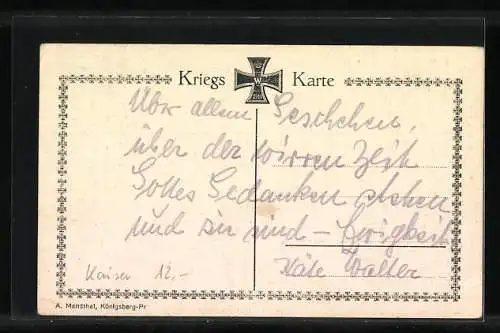 Kriegs Karte
W
1914
Über allem Geschehen,
über der wirren Zeit
Gottes Gedanken stehen
und sie sind – Ewigkeit
Käte Walter
Kaiser 12.-
A. Mendthal, Königsberg-Pr